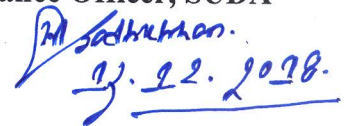 ance Officer, SUDA
13.12.2018.